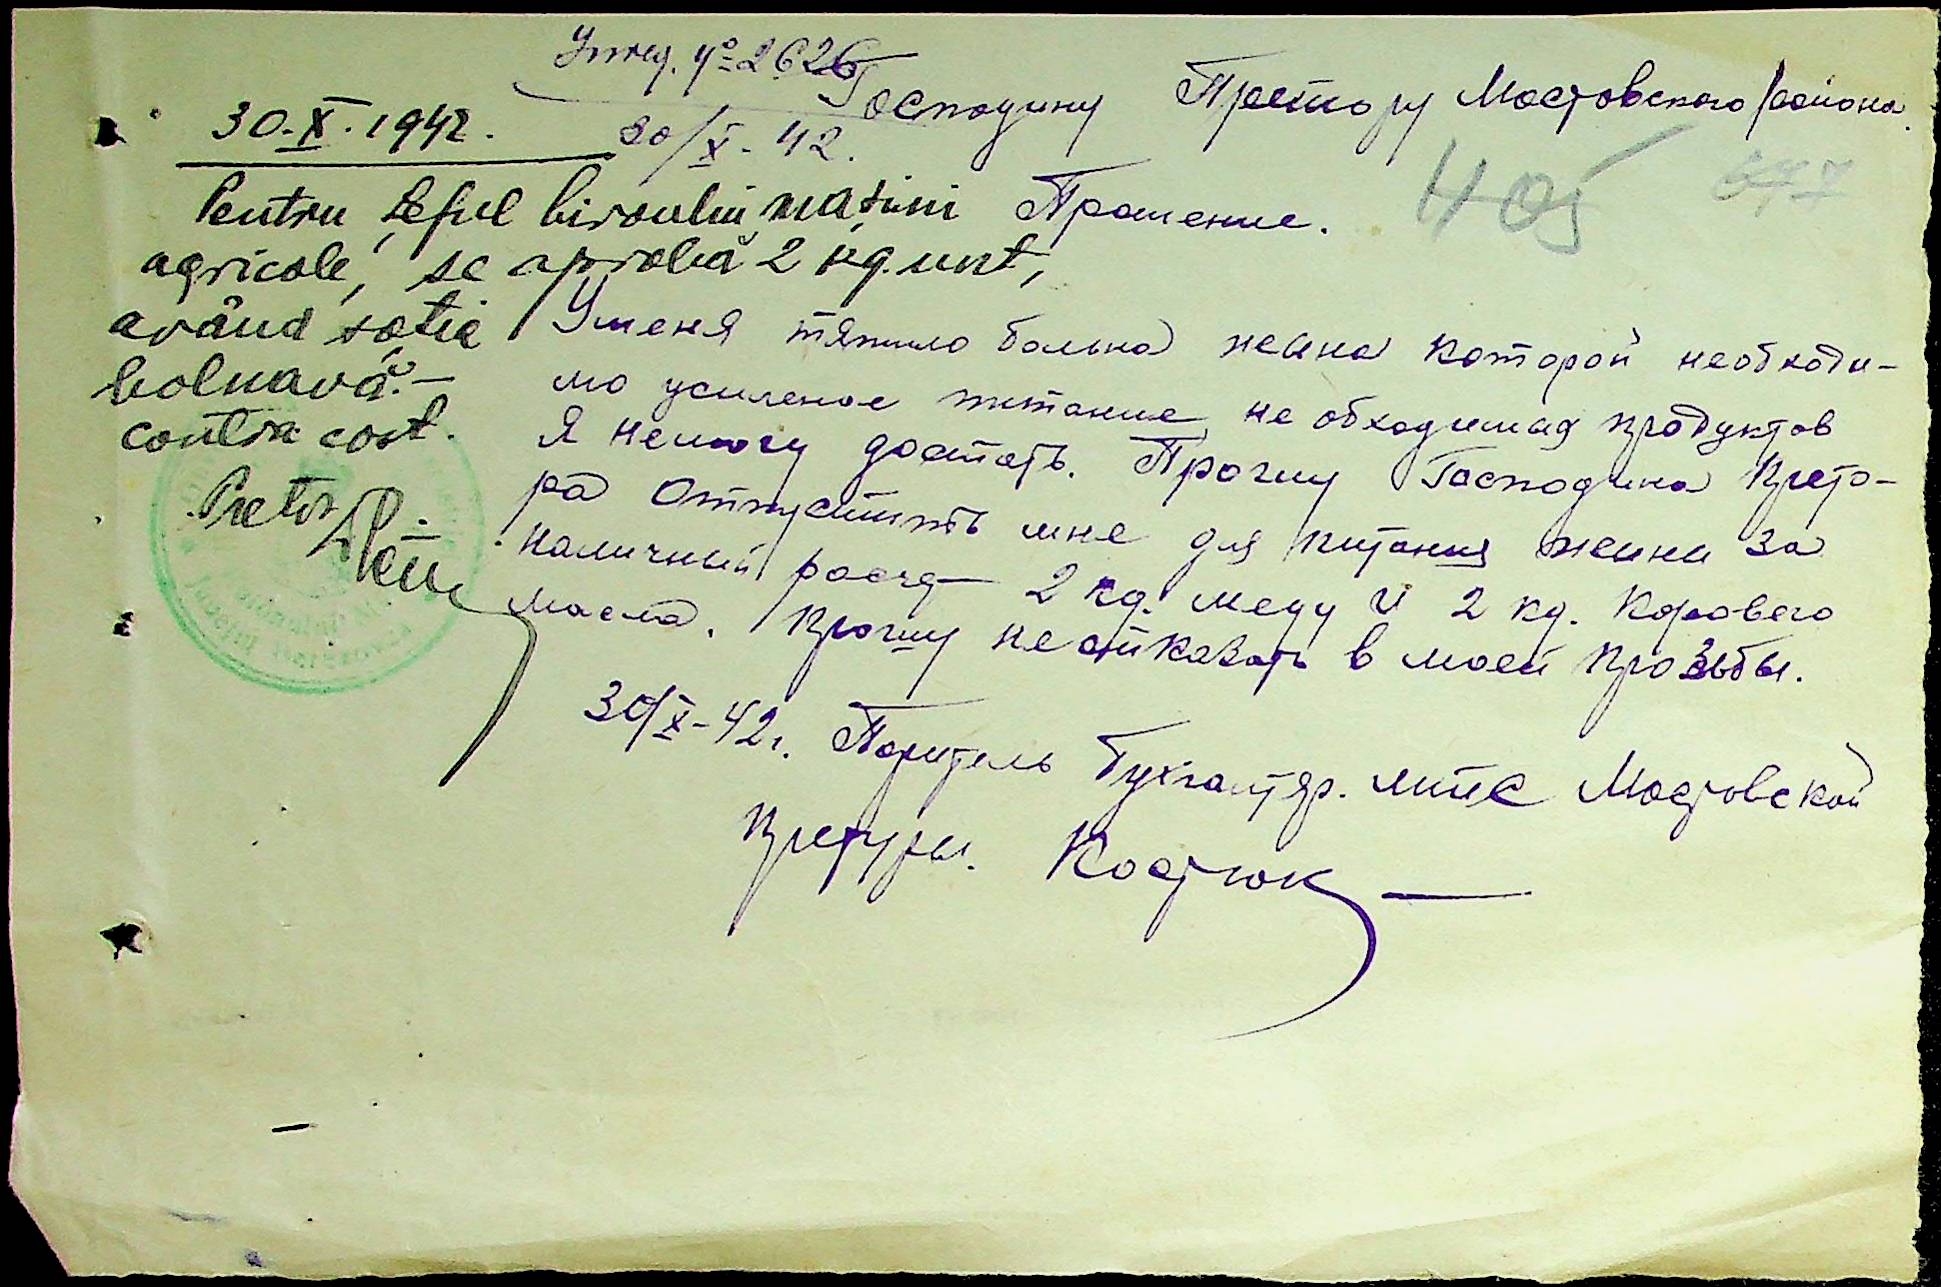 № 2626
30/X - 42.
Господину Претору Мостовского района.
405
30.X.1942.
Pentru șeful biroului mașini
agricole, se aprobă 2 kg. unt,
având soția
bolnavă.-
contra cost.
Pretor
Прошение.
У меня тяжило больна жена которой необходи-
мо усиленое питание, не обходимых продуктов
я немогу достать. Прошу Господина Прето-
ра отпустить мне для питания жены за
наличный расчет 2 кг. меду и 2 кг. коровего
масла. Прошу не отказать в моей прозьбы.
30/X-42г. Бухгалтер. МТС Мостовской
Претуры. Костюк